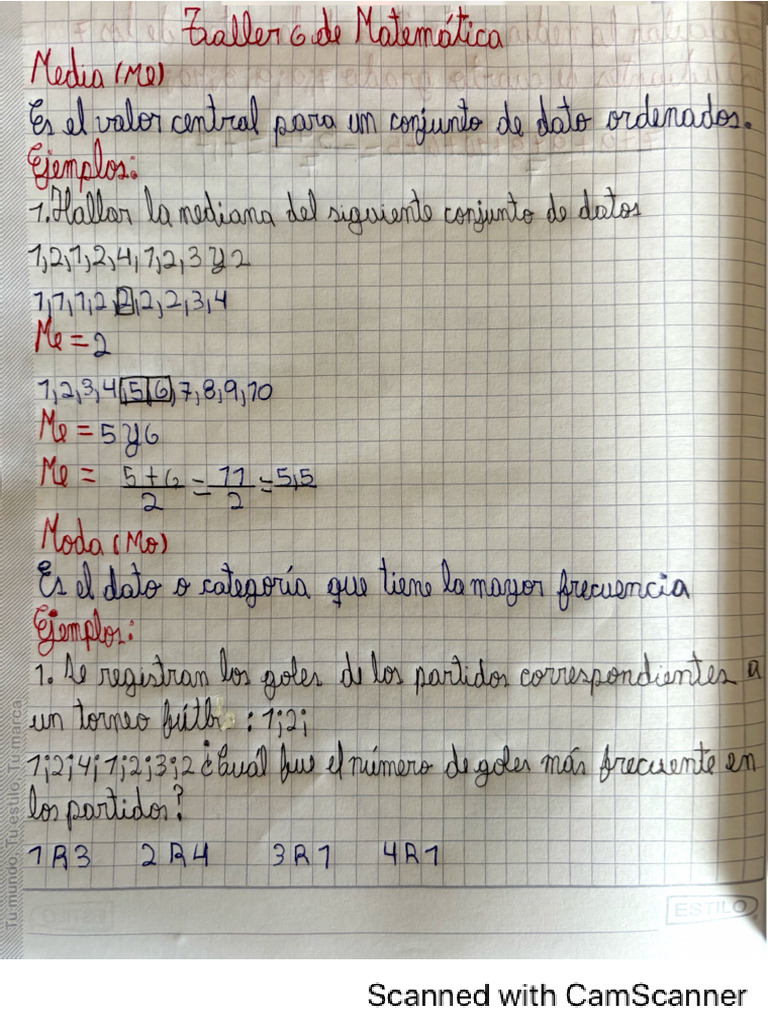 Taller 6 de Matemática
Media (Me)
Es el valor central para un conjunto de dato ordenados.
Ejemplos:
1. Hallar la mediana del siguiente conjunto de datos
1,2,1,2,4,1,2,3 y 2
1,1,1,2,2,2,2,3,4
Me = 2
1,2,3,4,5,6,7,8,9,10
Me = 5 y 6
Me = 5+6/2 = 11/2 = 5,5
Moda (Mo)
Es el dato o categoría que tiene la mayor frecuencia
Ejemplos:
1. Se registran los goles de los partidos correspondientes a
un torneo : 1;2;
1;2;4;1;2;3;2 ¿Cuál fue el número de goles más frecuente en
los partidos?
1 R 3 2 R 4 3 R 1 4 R 1
Tu mundo, Tu estilo, Tu marca
ESTILO
Scanned with CamScanner